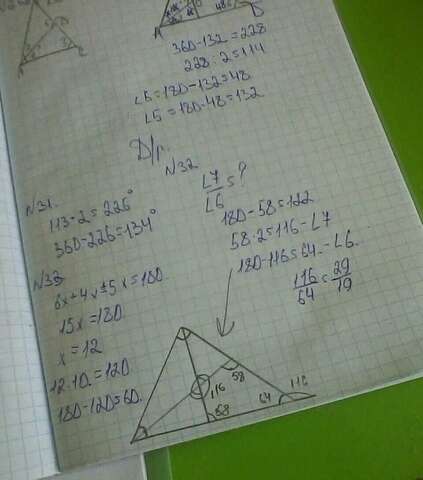 360-132=228
228:2=114
∠6=180-132=48
∠5=180-48=132
Д/р.
N31.
113·2=226°
360-226=134°
N32
∠7/∠6=?
180-58=122
58·2=116-∠7
180-116=64-∠6.
116/64=29/19
N33
6x+4x+5x=180
15x=180
x=12
12·10=120
180-120=60.
58
116
58
64
116